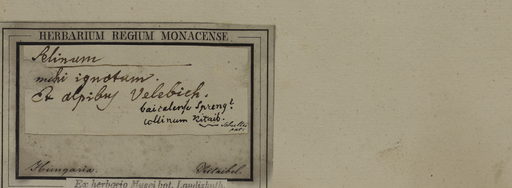 HERBARIUM REGIUM MONACENSE
Selinum
mihi ignotum.
Ex alpibus Velebich.
baicalense Spreng.
collinum Kitaib.
Hungaria. Kitaibel.
Ex herbario Musei bot. Landishuth.